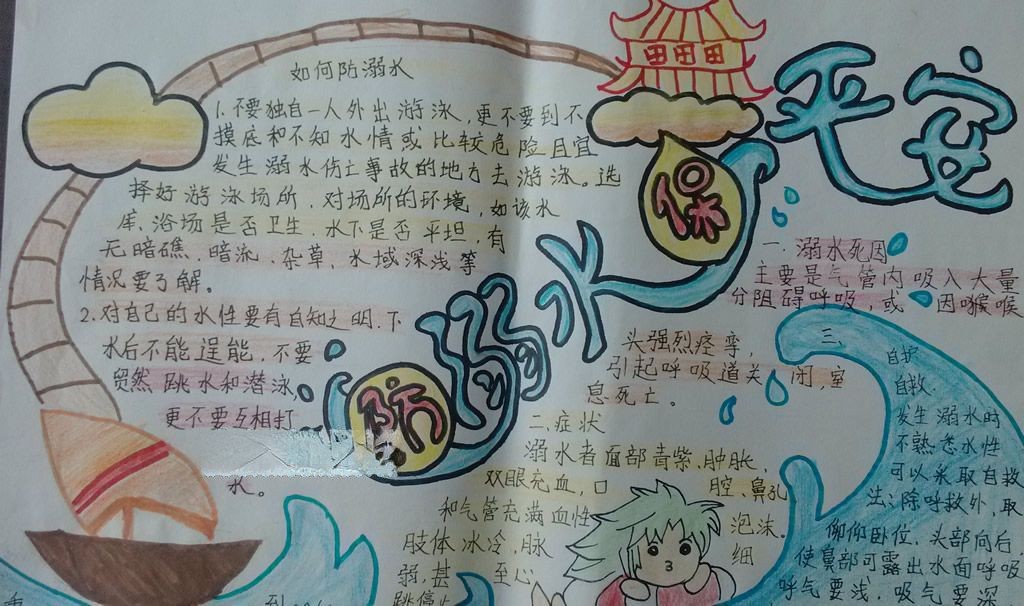 防溺水保平安
如何防溺水
1.不要独自一人外出游泳,更不要到不
摸底和不知水情或比较危险且宜
发生溺水伤亡事故的地方去游泳。选
择好游泳场所,对场所的环境,如该水
库、浴场是否卫生,水下是否平坦,有
无暗礁、暗流、杂草,水域深浅等
情况要了解。
2.对自己的水性要有自知之明,下
水后不能逞能,不要
贸然跳水和潜泳,
更不要互相打
水。
一、溺水死因
主要是气管内吸入大量
分阻碍呼吸,或 因喉喉
头强烈痉挛,
引起呼吸道关 闭,室
息死亡。
二、症状
溺水者面部青紫、肿胀、
双眼充血,口 腔、鼻孔
和气管充满血性 泡沫。
肢体冰冷,脉 细
弱,甚 至心
跳停止
三、
自护
自救:
发生溺水时
不熟悉水性
可以采取自救
法:除呼救外,取
仰卧位,头部向后,
使鼻部可露出水面呼吸
呼气要浅,吸气要深